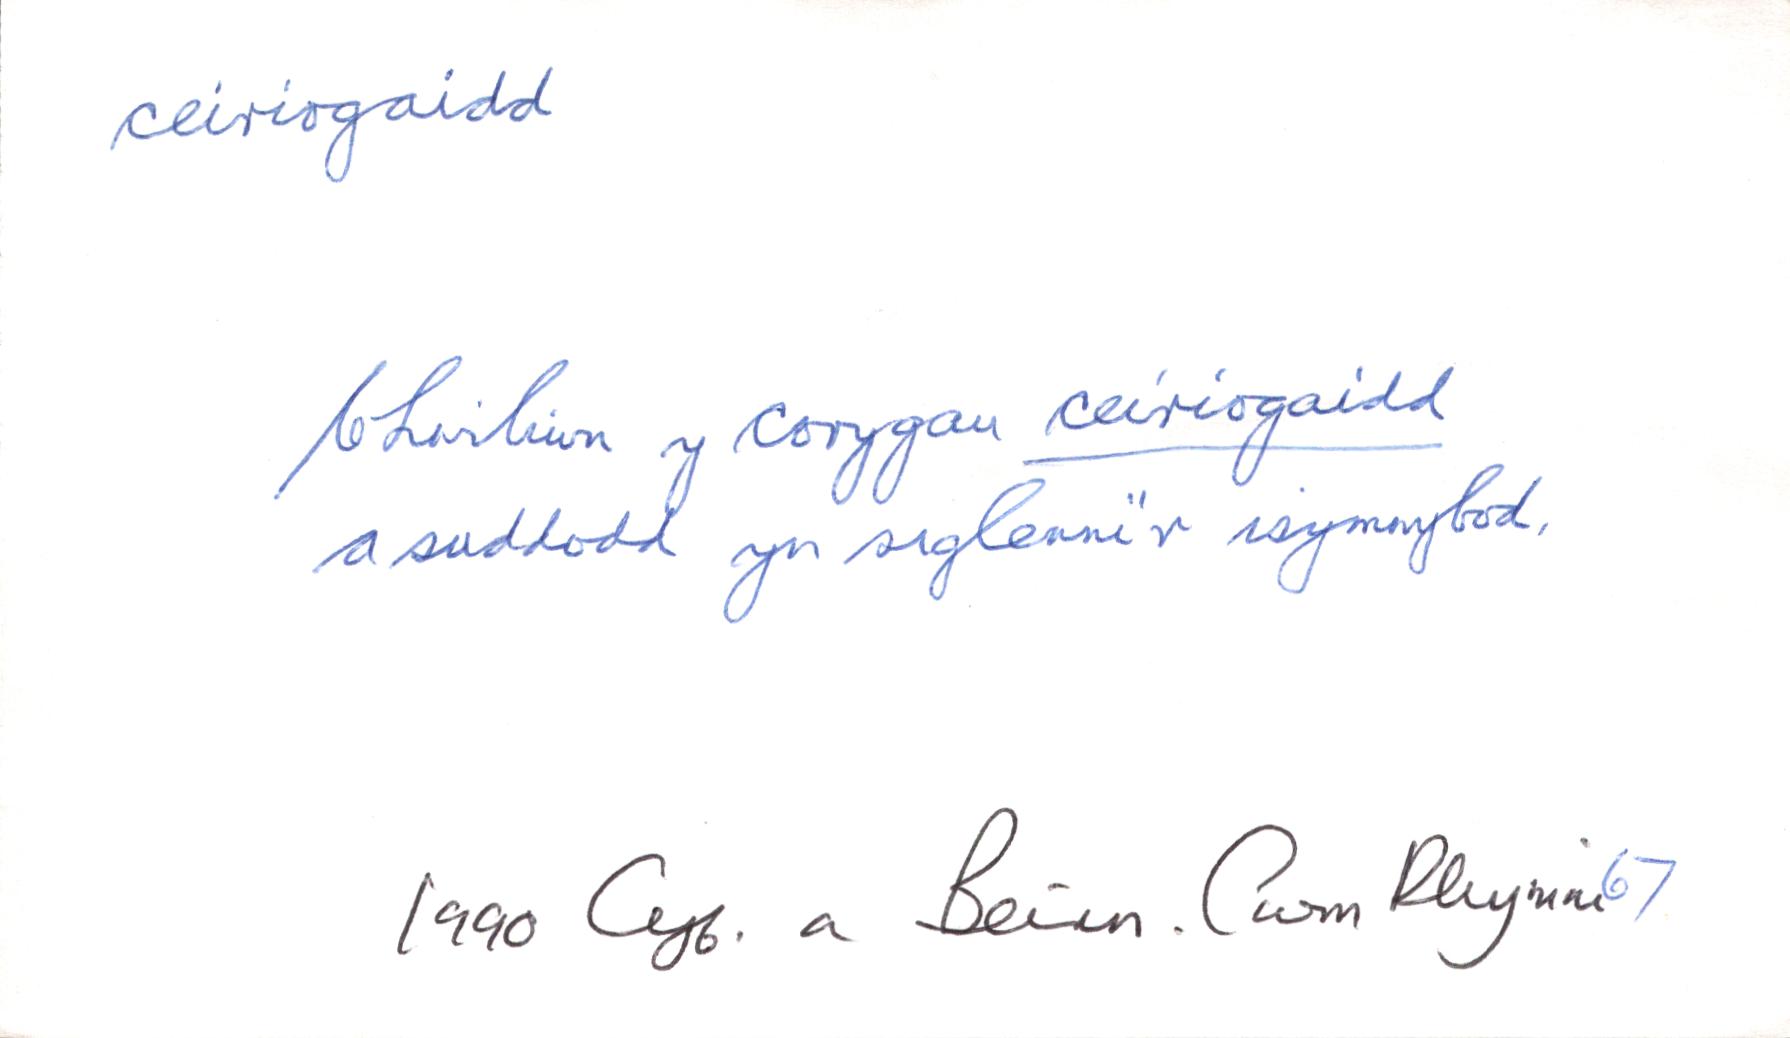 ceiriogaidd
Chwiliwn y corygau ceiriogaidd
a suddodd yn siglenni'r isymwybod.
1990 Cyf. a Beirn. Cwm Rhymni 67